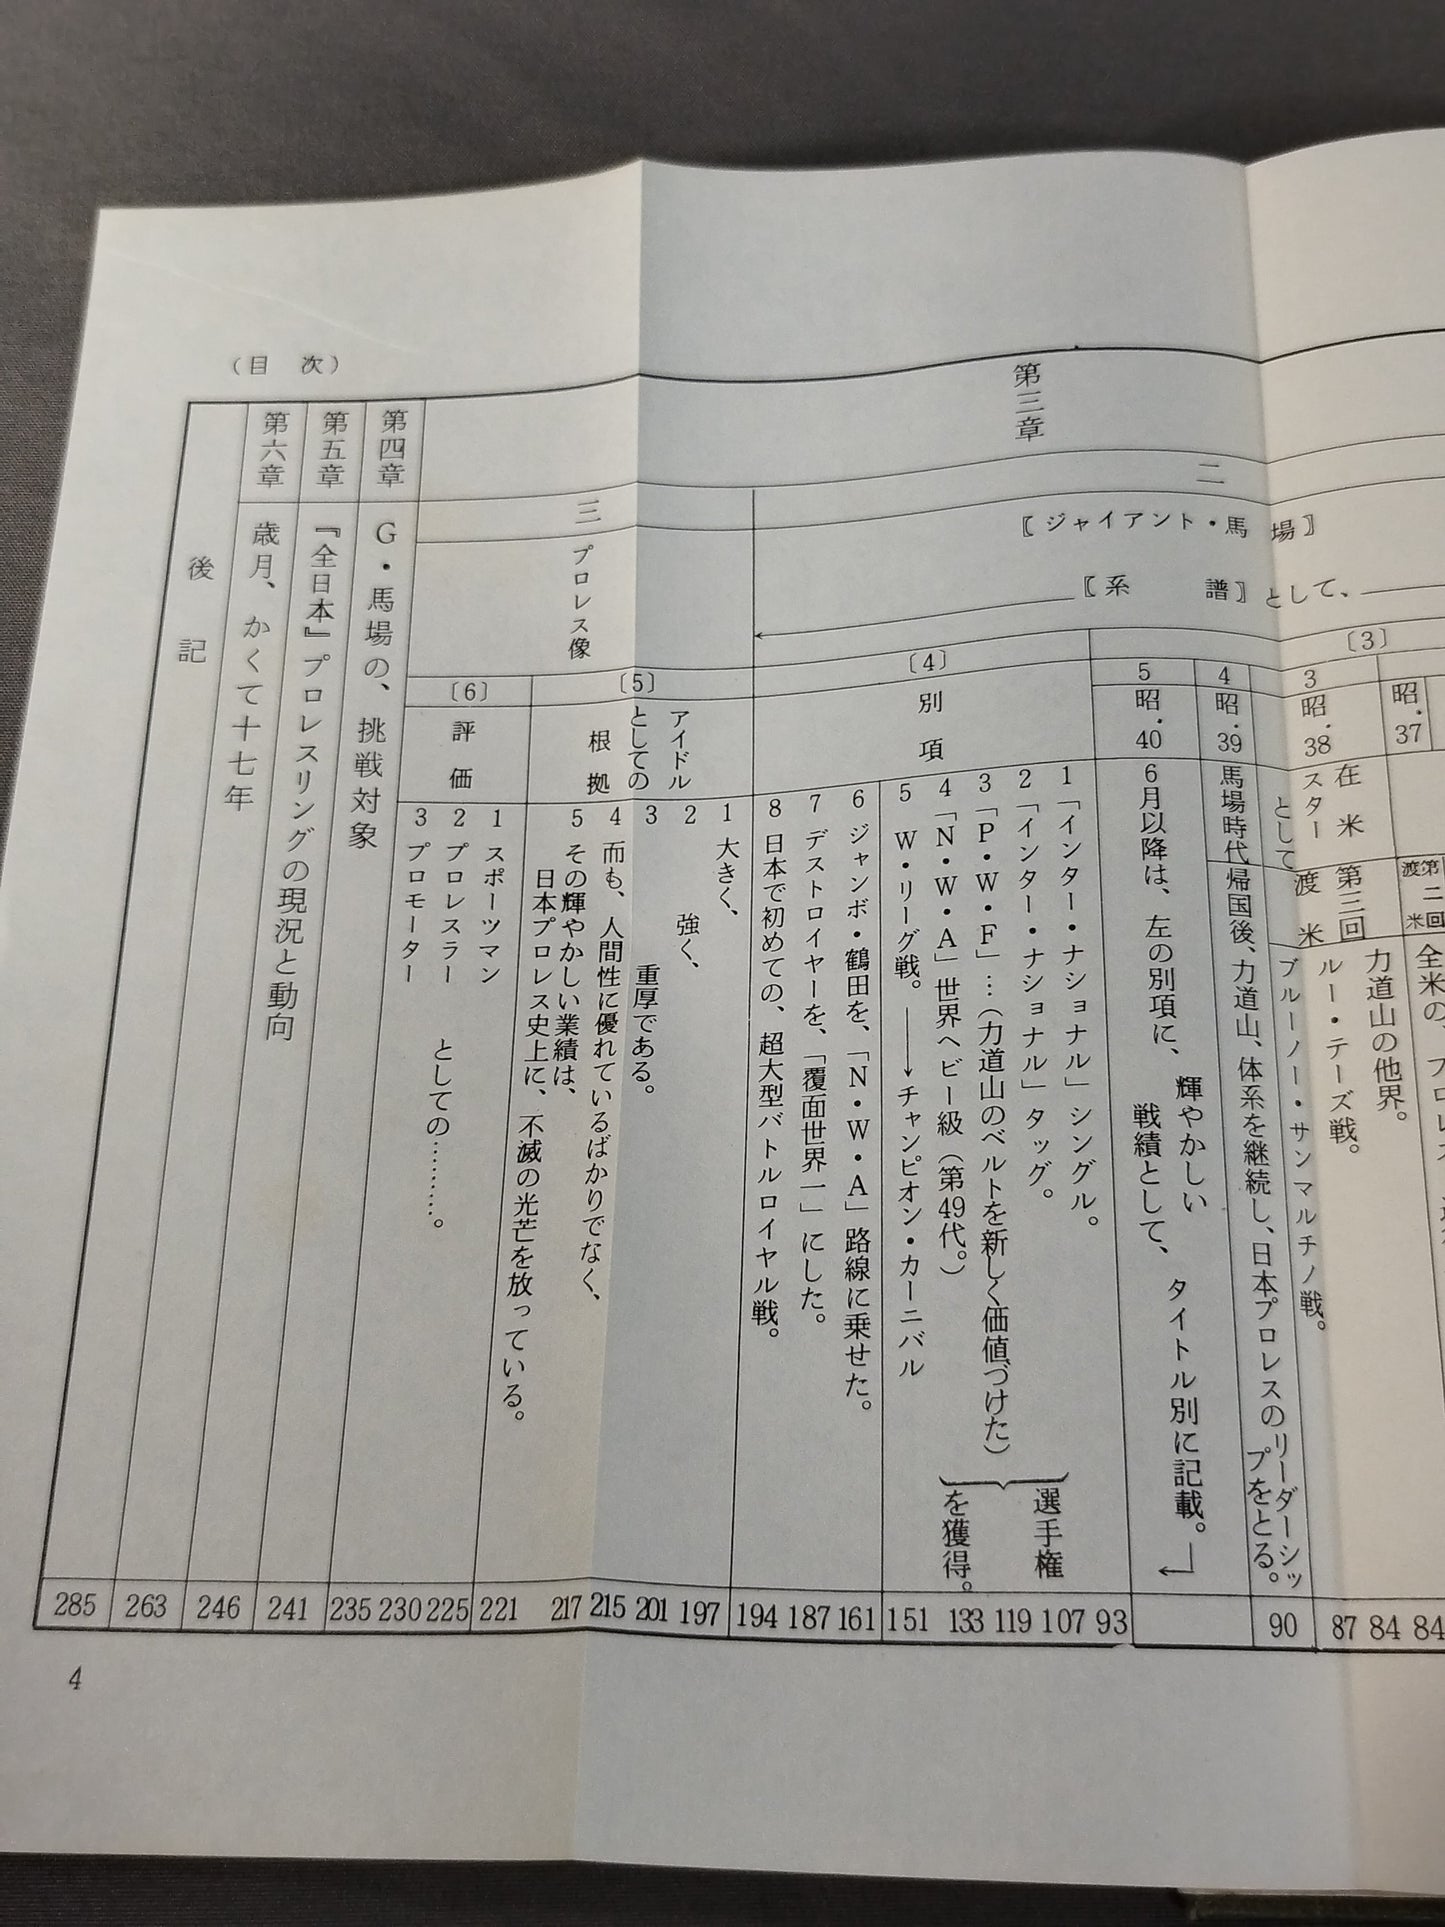 （目　次）
第三章
二
〖ジャイアント・馬場〗
〖系　譜〗として、
〔3〕
昭.37
第二回渡米
全米の、プロレス
3
昭.38
在米スターとして
第三回渡米
力道山の他界。
ルー・テーズ戦。
ブルーノー・サンマルチノ戦。
84
84
87
4
昭.39
馬場時代
帰国後、力道山、体系を継続し、日本プロレスのリーダーシップをとる。
90
5
昭.40
6月以降は、左の別項に、輝やかしい戦績として、タイトル別に記載。
〔4〕
別項
1「インター・ナショナル」シングル。
2「インター・ナショナル」タッグ。
3「P・W・F」…（力道山のベルトを新しく価値づけた）
4「N・W・A」世界ヘビー級（第49代。）
選手権を獲得。
5 W・リーグ戦。→チャンピオン・カーニバル
6 ジャンボ・鶴田を、「N・W・A」路線に乗せた。
7 デストロイヤーを、「覆面世界一」にした。
8 日本で初めての、超大型バトルロイヤル戦。
93
107
119
133
151
161
187
194
三
プロレス像
〔5〕
アイドルとしての
根拠
1 大きく、
2 強く、
3 重厚である。
4 而も、人間性に優れているばかりでなく、
5 その輝やかしい業績は、
日本プロレス史上に、不滅の光芒を放っている。
197
201
215
217
〔6〕
評価
1 スポーツマン
2 プロレスラー
3 プロモーター
としての………。
221
225
230
第四章
G・馬場の、挑戦対象
235
第五章
『全日本』プロレスリングの現況と動向
241
第六章
歳月、かくて十七年
246
後記
263
285
4